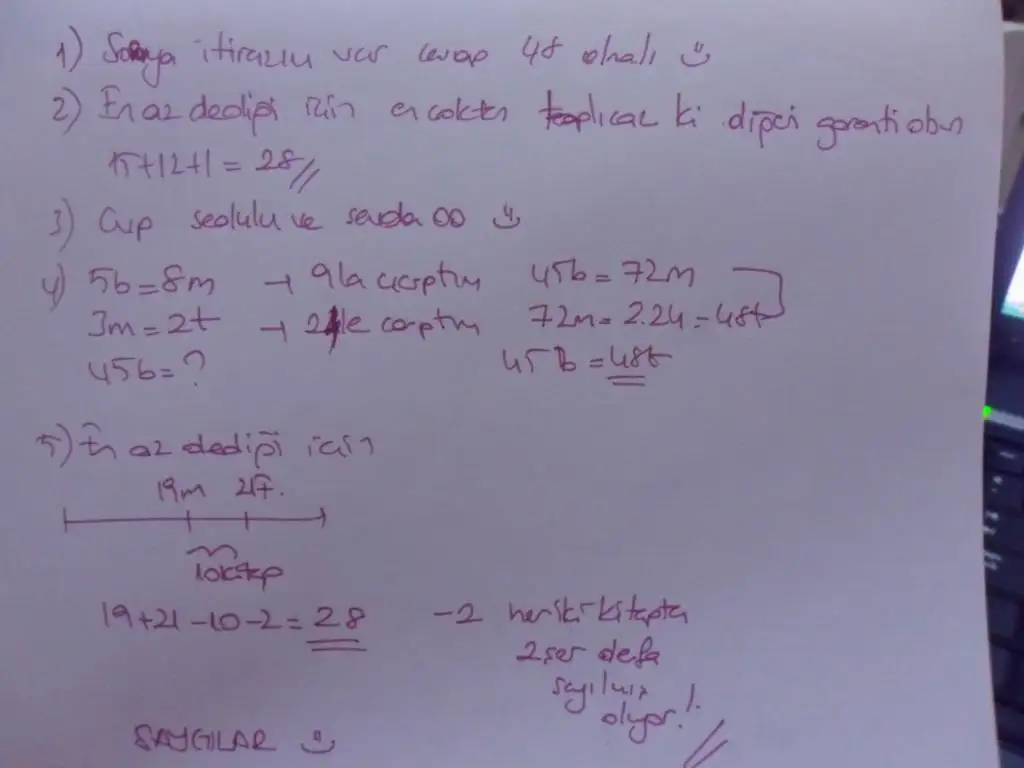 1) Soruya itirazım var cevap 48 olmalı
2) En az dediği için en çoktan toplıcaz ki diğeri garanti olsun
15+12+1=28//
3) Cvp
4) 5b=8m → 9la çarptım 45b=72m
3m=2t → 24le çarptım 72m=2.24=48t
45b=? 45b=48t
5) En az dediği için
19m 21f.
10kitap
19+21-10-2=28 -2 her iki kitapta
2şer defa
sayılmış
oluyor!
SAYGILAR